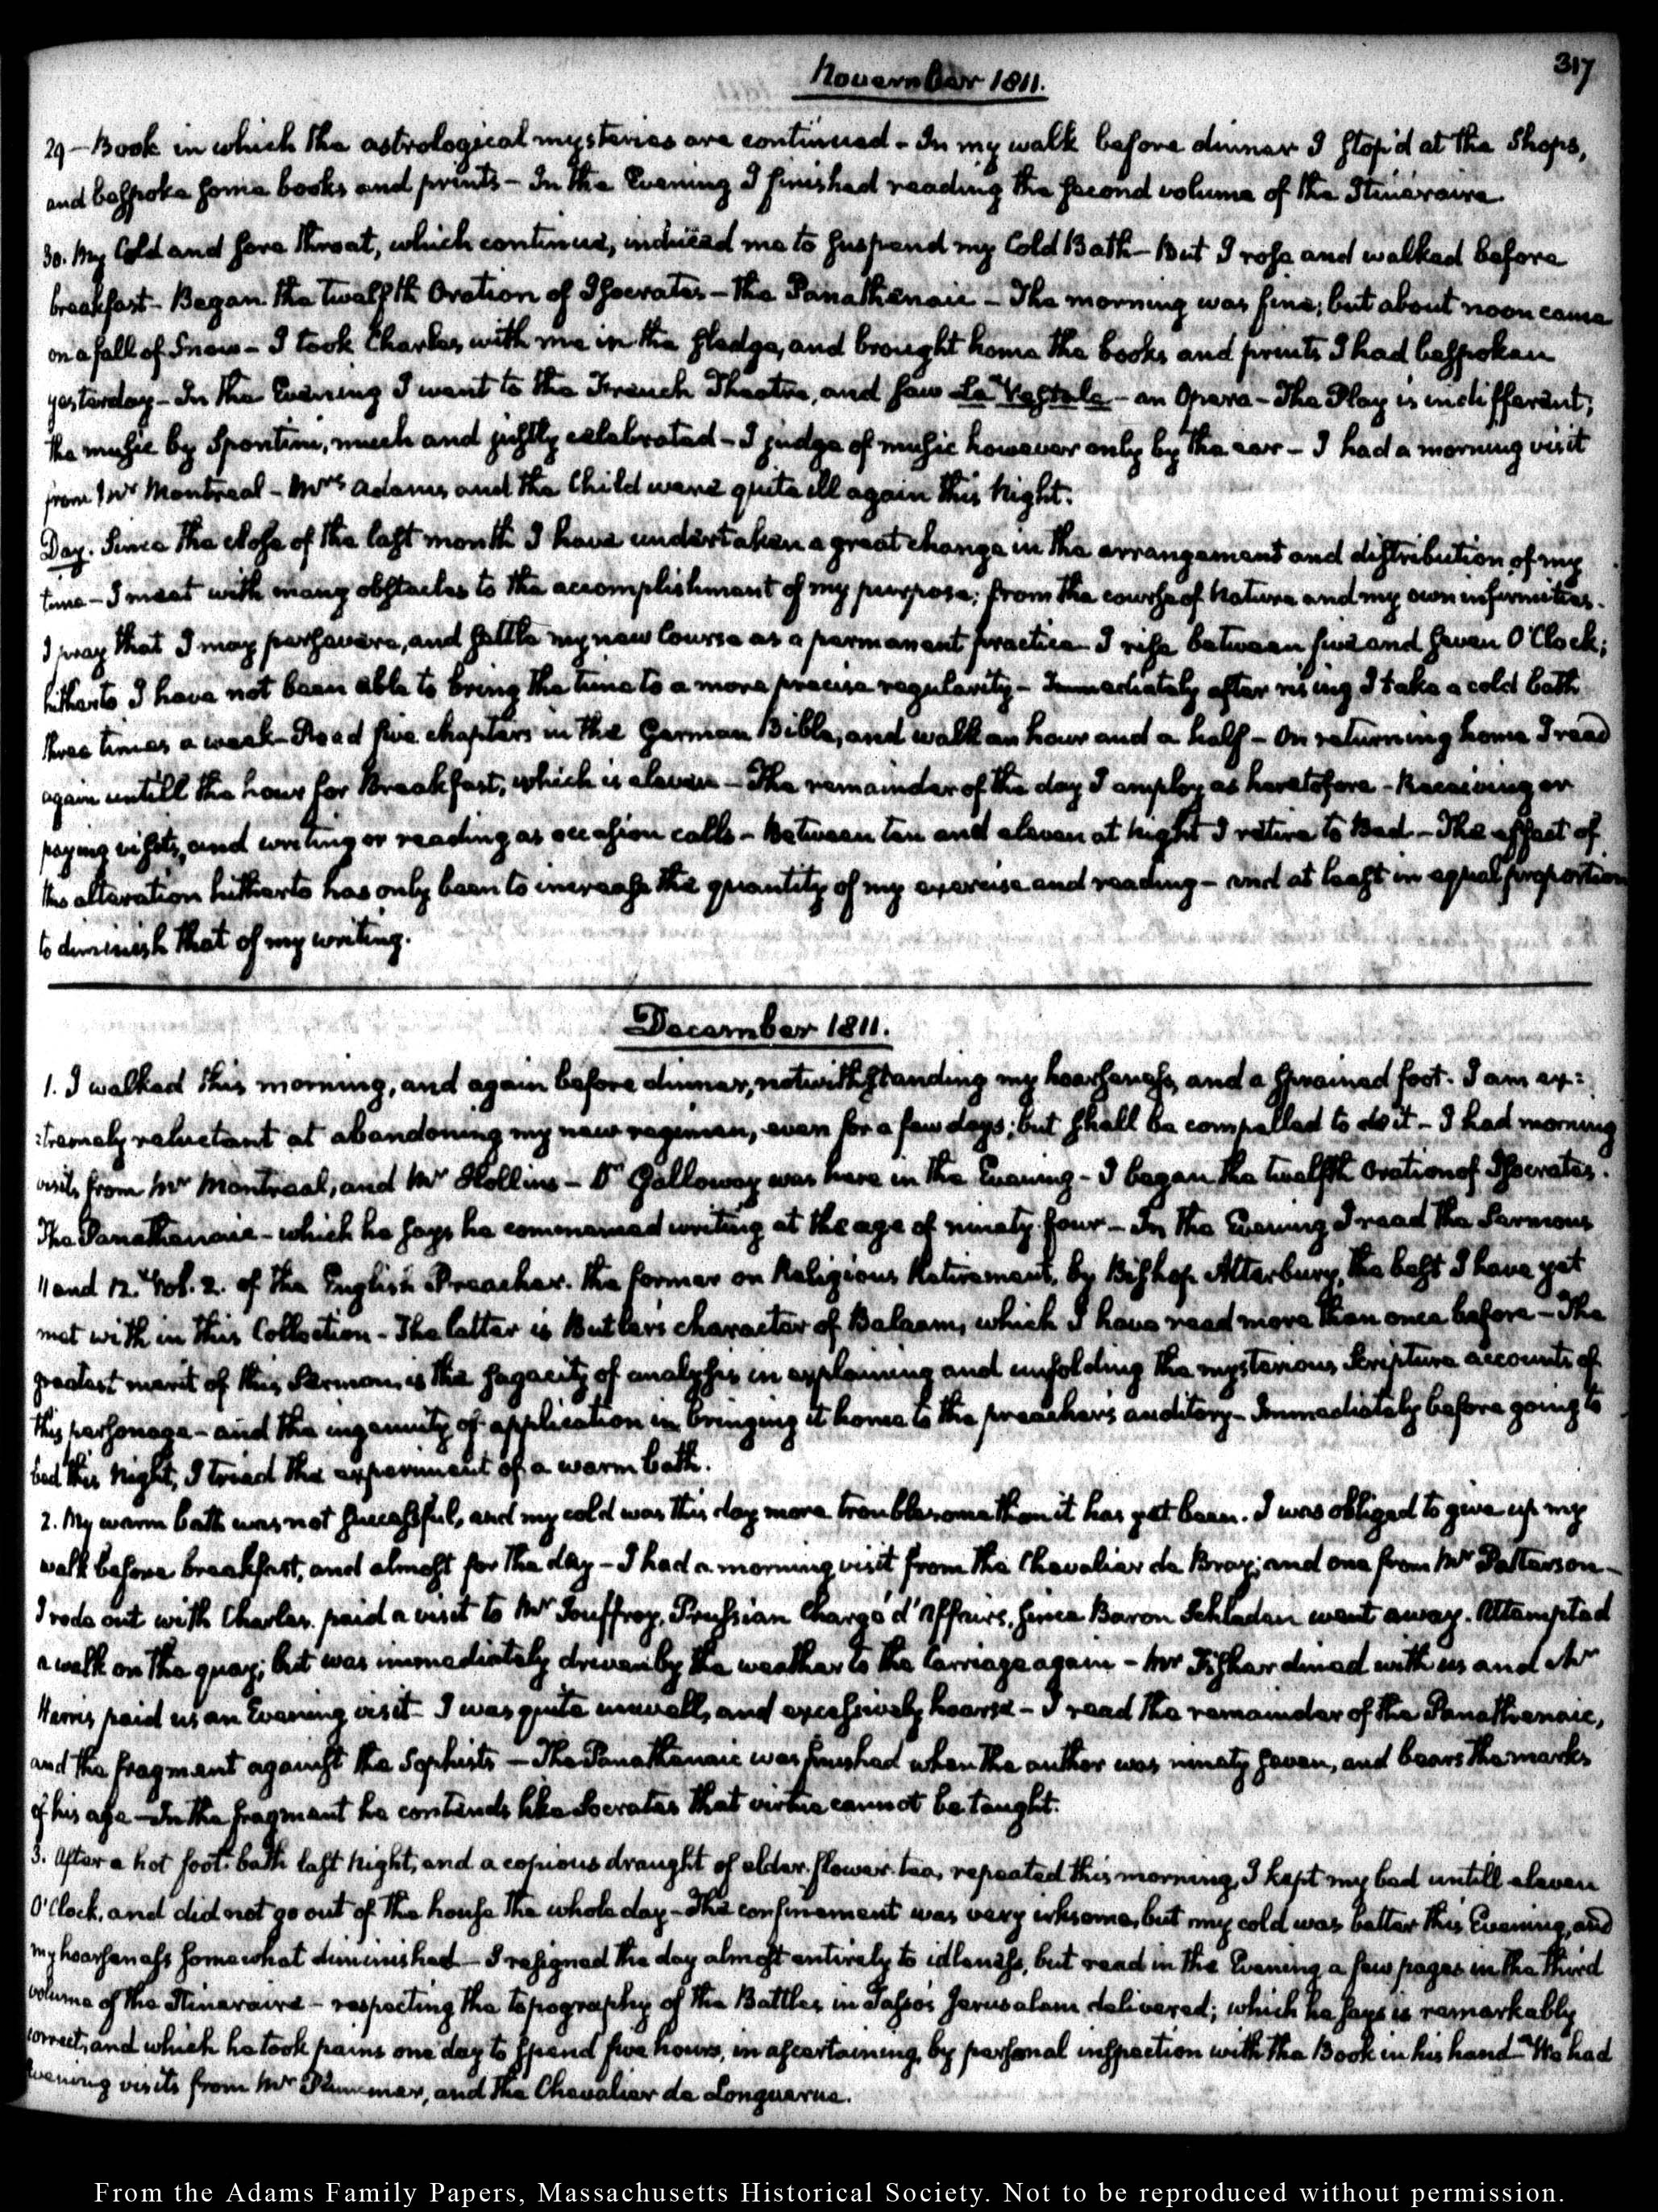 November 1811.
317
29 - Book in which the astrological mysteries are continued - In my walk before dinner I stop'd at the Shops,
and bespoke some books and prints - In the Evening I finished reading the second volume of the Itinéraire.
30. My Cold and sore throat, which continue, induced me to suspend my Cold Bath - But I rose and walked before
breakfast - Began the twelfth Oration of Isocrates - The Panathenaic - The morning was fine; but about noon came
on a fall of Snow - I took Charles with me in the sledge, and brought home the books and prints I had bespoken
yesterday - In the Evening I went to the French Theatre, and saw La Vestale - an Opera - The Play is indifferent;
the music by Spontini, much and justly celebrated - I judge of music however only by the ear - I had a morning visit
from Mr Montreal - Mrs Adams and the Child were quite ill again this Night.
Day. Since the close of the last month I have undertaken a great change in the arrangement and distribution of my
time - I meet with many obstacles to the accomplishment of my purpose; from the course of Nature and my own infirmities.
I pray that I may persevere, and settle my new Course as a permanent practice - I rise between five and seven O'Clock;
hitherto I have not been able to bring the time to a more precise regularity - Immediately after rising I take a cold bath
three times a week - Read five chapters in the German Bible, and walk an hour and a half - On returning home I read
again untill the hour for Breakfast, which is eleven - The remainder of the day I employ as heretofore - Receiving or
paying visits, and writing or reading as occasion calls - Between ten and eleven at Night I retire to Bed - The effect of
this alteration hitherto has only been to increase the quantity of my exercise and reading - and at least in equal proportion
to diminish that of my writing.
December 1811.
1. I walked this morning, and again before dinner, notwithstanding my hoarseness, and a sprained foot. I am ex=
=tremely reluctant at abandoning my new regimen, even for a few days; but shall be compelled to do it - I had morning
visits from Mr Montreal, and Mr Hollins - Dr Galloway was here in the Evening - I began the twelfth Oration of Isocrates.
The Panathenaic - which he says he commenced writing at the age of ninety four - In the Evening I read the Sermons
11 and 12. Vol. 2. of the English Preacher. The former on Religious Retirement, by Bishop Atterbury, the best I have yet
met with in this Collection - The latter is Butler's character of Balaam, which I have read more than once before - The
greatest merit of this Sermon, is the sagacity of analysis in explaining and unfolding the mysterious Scripture accounts of
this personage - and the ingenuity of application in bringing it home to the preacher's auditory - Immediately before going to
bed this Night, I tried the experiment of a warm bath.
2. My warm bath was not successful, and my cold was this day more troublesome than it has yet been. I was obliged to give up my
walk before breakfast, and almost for the day - I had a morning visit from the Chevalier de Bray; and one from Mr Patterson -
I rode out with Charles. paid a visit to Mr Jouffroy, Prussian Chargé d'Affairs, since Baron Schladen went away. Attempted
a walk on the quay; but was immediately driven by the weather to the Carriage again - Mr Fisher dined with us and Mr
Harris paid us an Evening visit - I was quite unwell, and excessively hoarse - I read the remainder of the Panathenaic,
and the fragment against the Sophists - The Panathenaic was finished when the author was ninety seven, and bears the marks
of his age - In the fragment he contends like Socrates that virtue cannot be taught.
3. After a hot foot-bath last Night, and a copious draught of elder-flower-tea, repeated this morning, I kept my bed untill eleven
O'Clock, and did not go out of the house the whole day - The confinement was very irksome, but my cold was better this Evening, and
my hoarseness somewhat diminished - I resigned the day almost entirely to idleness, but read in the Evening a few pages in the third
volume of the Itineraire - respecting the topography of the Battles in Tasso's Jerusalem delivered; which he says is remarkably
correct, and which he took pains one day to spend five hours, in ascertaining, by personal inspection with the Book in his hand - We had
evening visits from Mr Plummer, and the Chevalier de Longuerue.
From the Adams Family Papers, Massachusetts Historical Society. Not to be reproduced without permission.